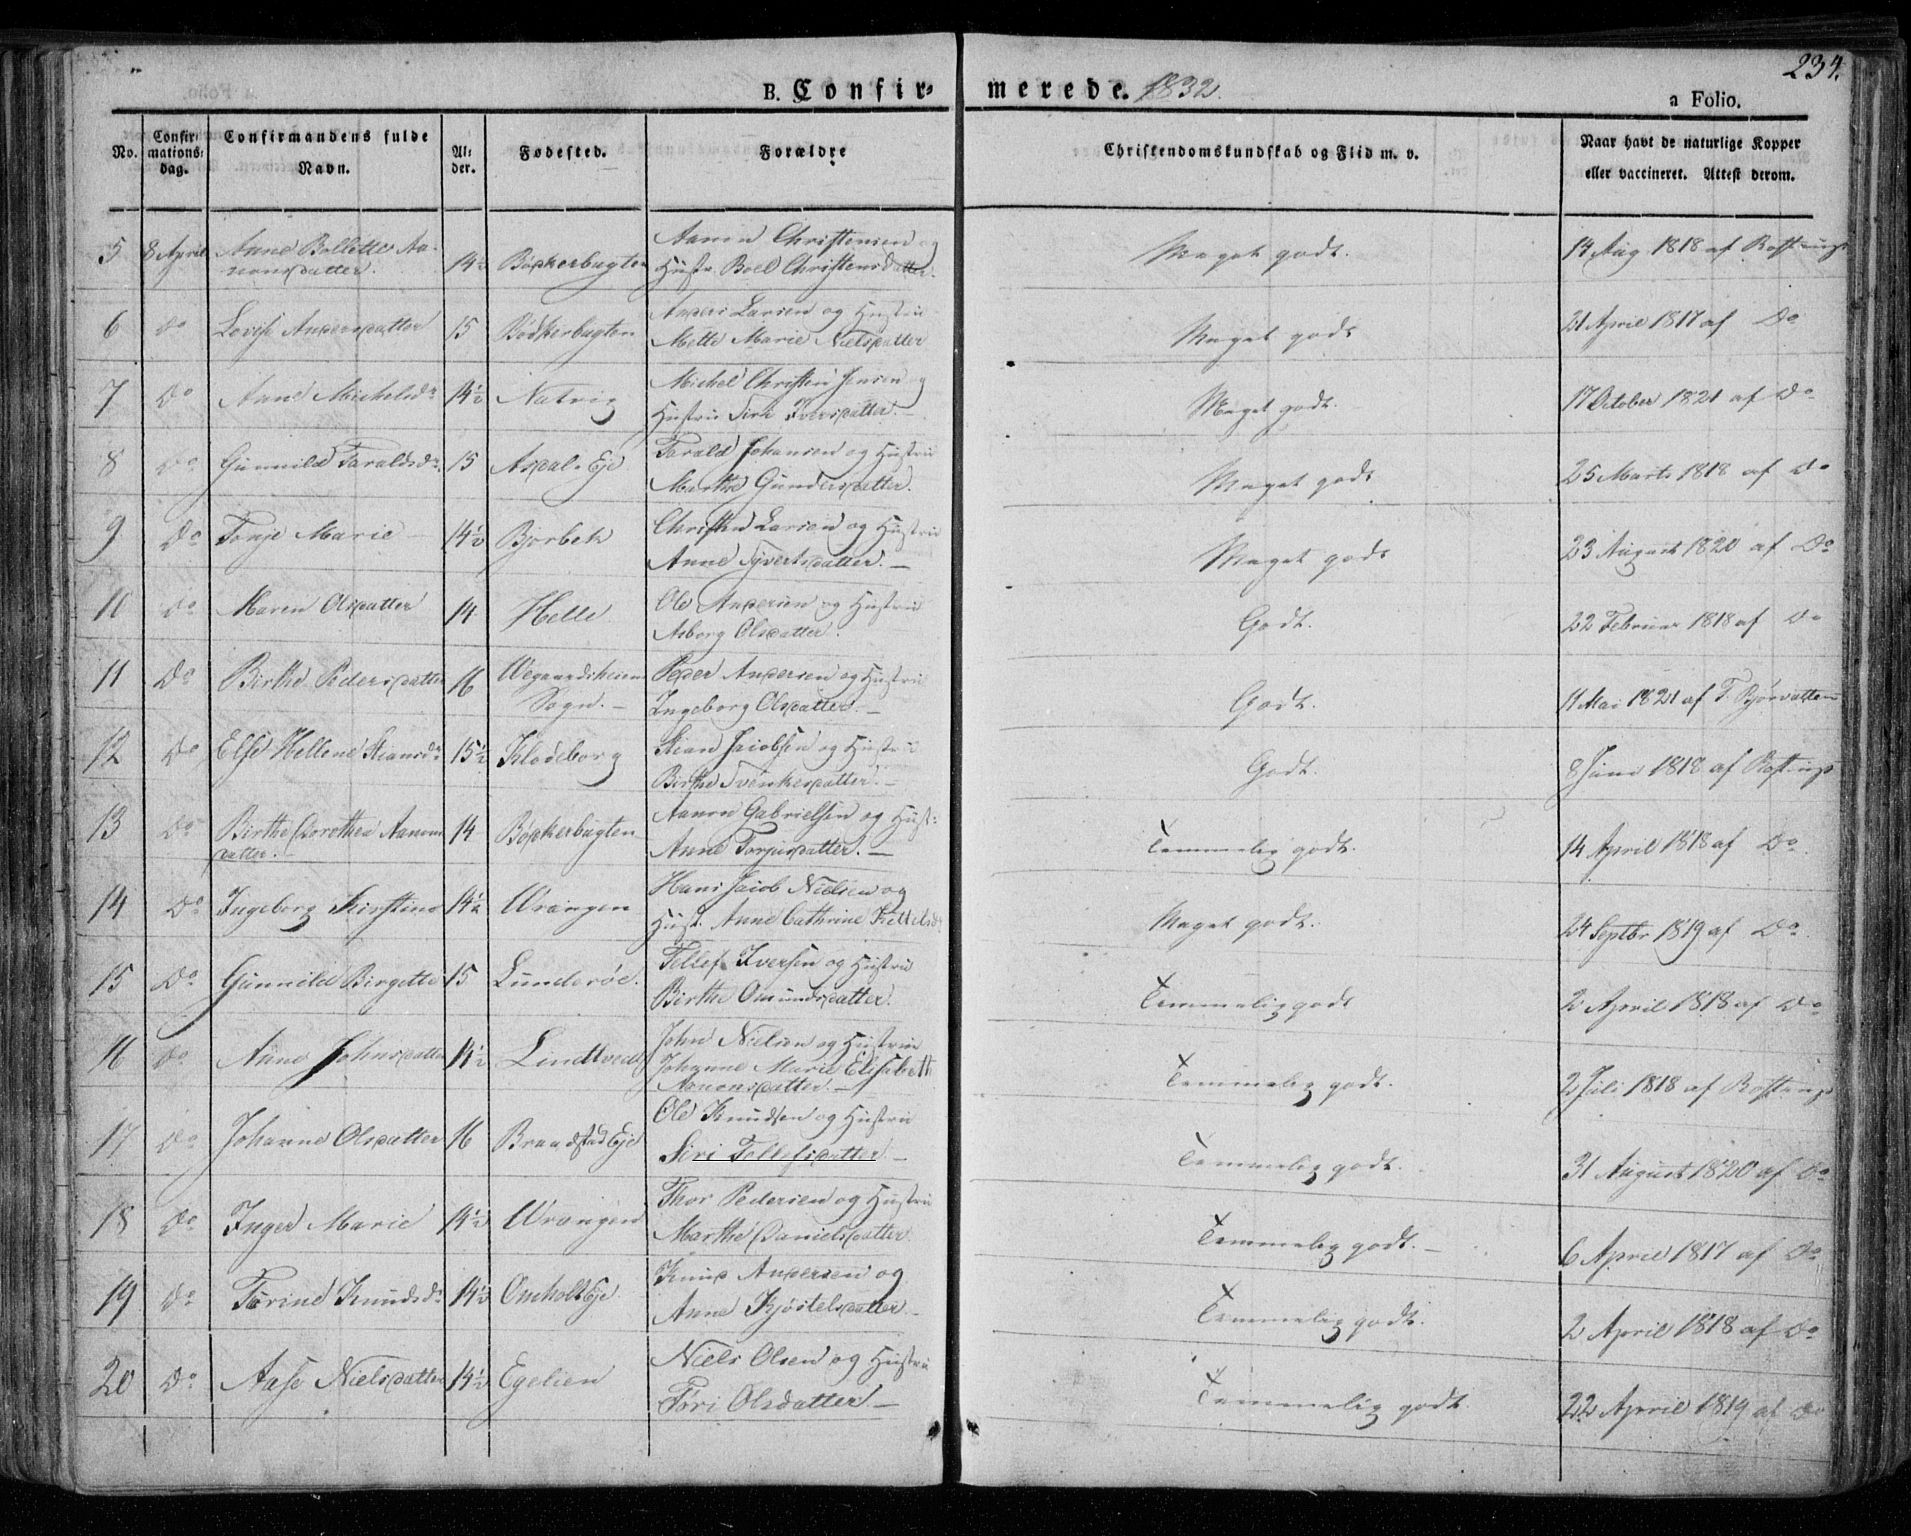 234.
B. Confir- merede. 1832.
a Folio.
No. Confirmations-dag. Confirmandens fulde Navn. Alder. Fødested. Forældre Christendomskundskab og Flid m. v. Naar havt de naturlige Kopper eller vaccineret. Attest derom.
5 8 April Anne Bollette Aanonsdatter. 14½ Bødkerbugten Aanon Christensen og Hustr. Boel Christensdatter. Meget godt. 14 Aug 1818 af Rostrup
6 Do Lovise Andersdatter 15 Bødkerbugten Anders Larsen og Hustru Mette Marie Nielsdatter Meget godt 21 April 1817 af Do
7 Do Anne Michelsdr 14½ Natvig Michel Christen Jensen og Hustru Siri Iversdatter. – Meget godt. 17 October 1821 af Do
8 Do Gunnild Taraldsdr. 15 Asdal-Eje Tarald Johansen og Hustru Marthe Gundersdatter. Meget godt 25 Marts 1818 af Do
9 Do Tonje Marie – 14½ Bjorbek Christen Larsen og Hustru Anne Syvertsdatter. – Meget godt 23 August 1820 af Do
10 Do Maren Olsdatter 14 Helle Ole Andersen og Hustru Asborg Olsdatter. Godt. 22 Februar 1818 af Do
11 Do Birthe Pedersdatter 16 Wegaardsheiens Sogn. – Peder Andersen og Hustru Ingeborg Olsdatter. – Godt. 11 Mai 1821 af T. Bjørvatten
12 Do Else Hellene Steansdr 15½ Klodeborg Stean Jacobsen og Hustru Birthe Svenkesdatter. – Godt. 8 Juni 1818 af Rostrup
13 Do Birthe Dorothea Aanonsdatter. – 14 Bødkerbugten Aanon Gabrielsen og Hust: Anne Torjusdatter. – Temmelig godt. 14 April 1818 af Do
14 Do Ingeborg Kirstine 14½ Wrangen Hans Jacob Nielsen og Hust. Anne Cathrine Kittelsdr Meget godt. 24 Septbr 1819 af Do
15 Do Gunnild Birgette 15 Lunderøe. Tellef Iversen og Hustru Birthe Omundsdatter. Temmelig godt 2 April 1818 af Do
16 Do Anne Johnsdatter 14½ Lindtveed John Nielsen og Hustrue Johanne Marie Elisabeth Aanonsdatter. – Temmelig godt. 2 Juli 1818 af Rostrup
17 Do Johanne Olsdatter 16 Braadstad Eje Ole Knudsen og Hustru Siri Tellefsdatter. – Temmelig godt. 31 August 1820 af Do
18 Do Inger Marie 14½ Wrangen Thor Pedersen og Hustru Marthe Danielsdatter Temmelig godt. – 6 April 1817 af Do
19 Do Torine Knudsdr 14½ Omholt Eje Knud Andersen og Anne Kjøstelsdatter – Temmelig godt. 2 April 1818 af Do
20 Do Aase Nielsdatter 14½ Egelien Niels Olsen og Hustru Tøri Olsdatter – Temmelig godt 22 April 1819 af Do